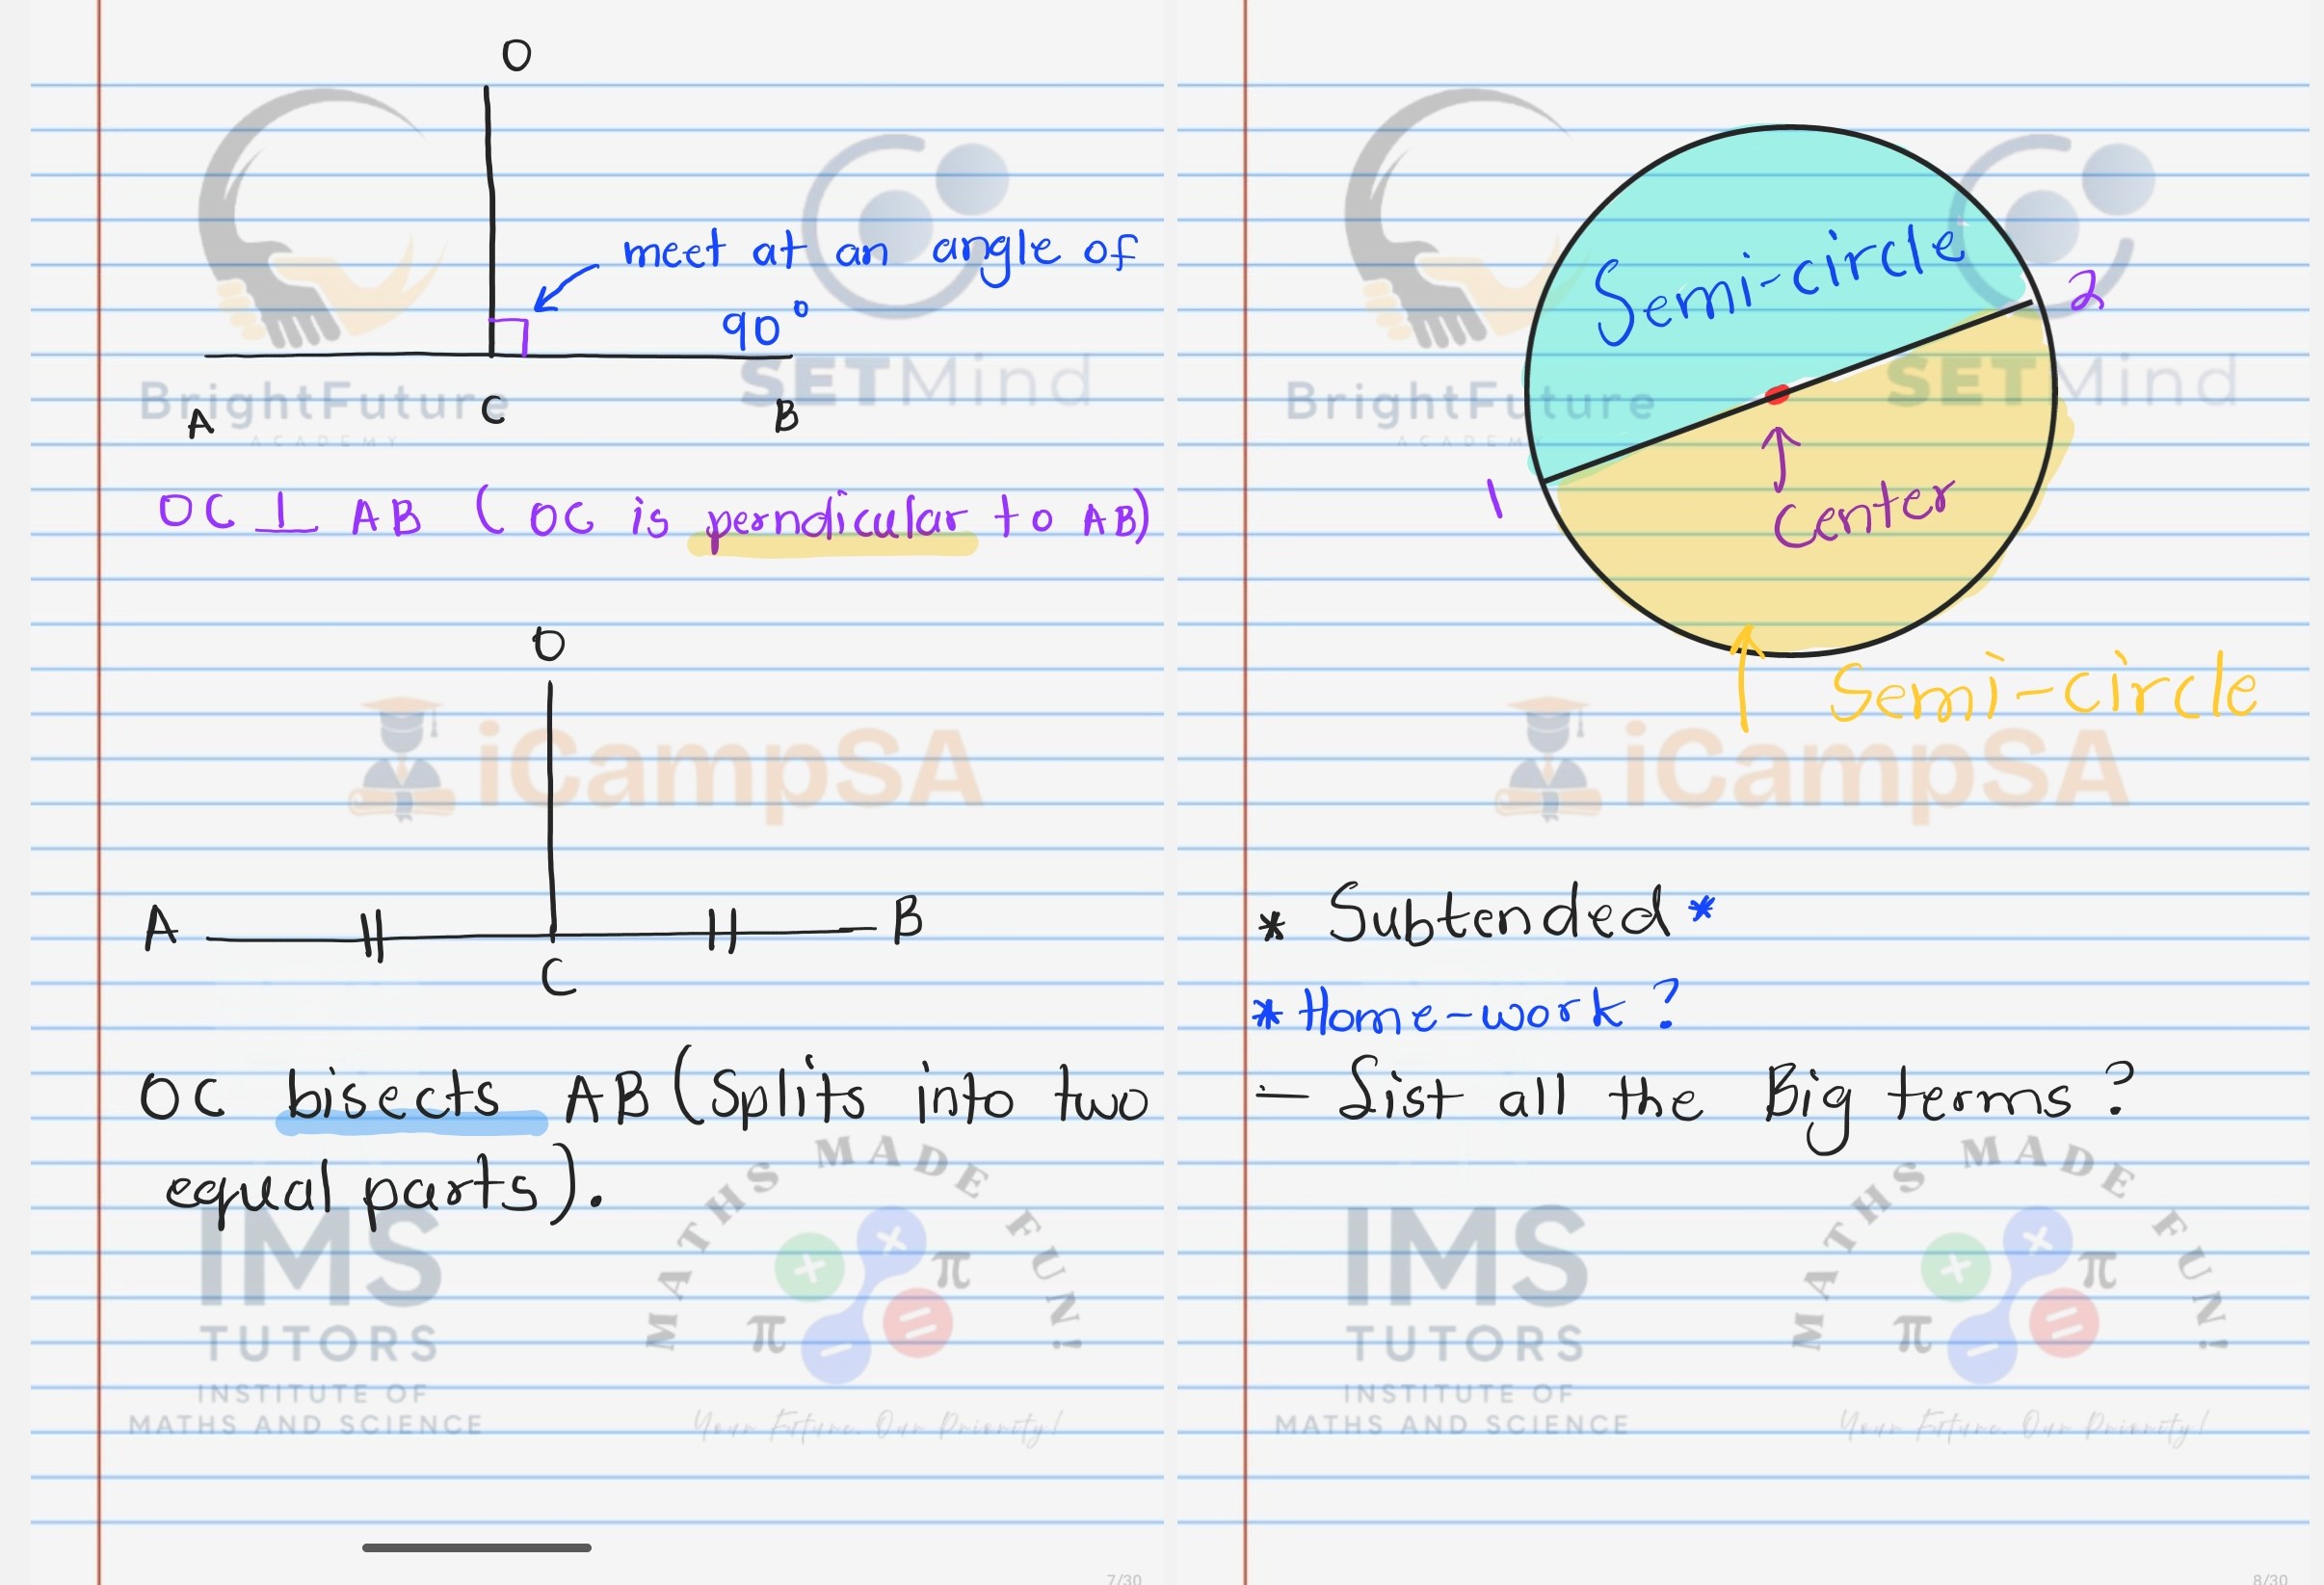 O
meet at an angle of
90°
A
C
B
OC ⊥ AB (OC is perndicular to AB)
O
A
B
C
OC bisects AB (Splits into two
equal parts).
BrightFuture
ACADEMY
SETMind
iCampSA
IMS
TUTORS
INSTITUTE OF
MATHS AND SCIENCE
MATHS MADE FUN!
π
π
Your Future. Our Priority!
7/30
Semi-circle
2
1
Center
Semi-circle
* Subtended *
* Home-work ?
÷ List all the Big terms ?
BrightFuture
ACADEMY
SETMind
iCampSA
IMS
TUTORS
INSTITUTE OF
MATHS AND SCIENCE
MATHS MADE FUN!
π
π
Your Future. Our Priority!
8/30